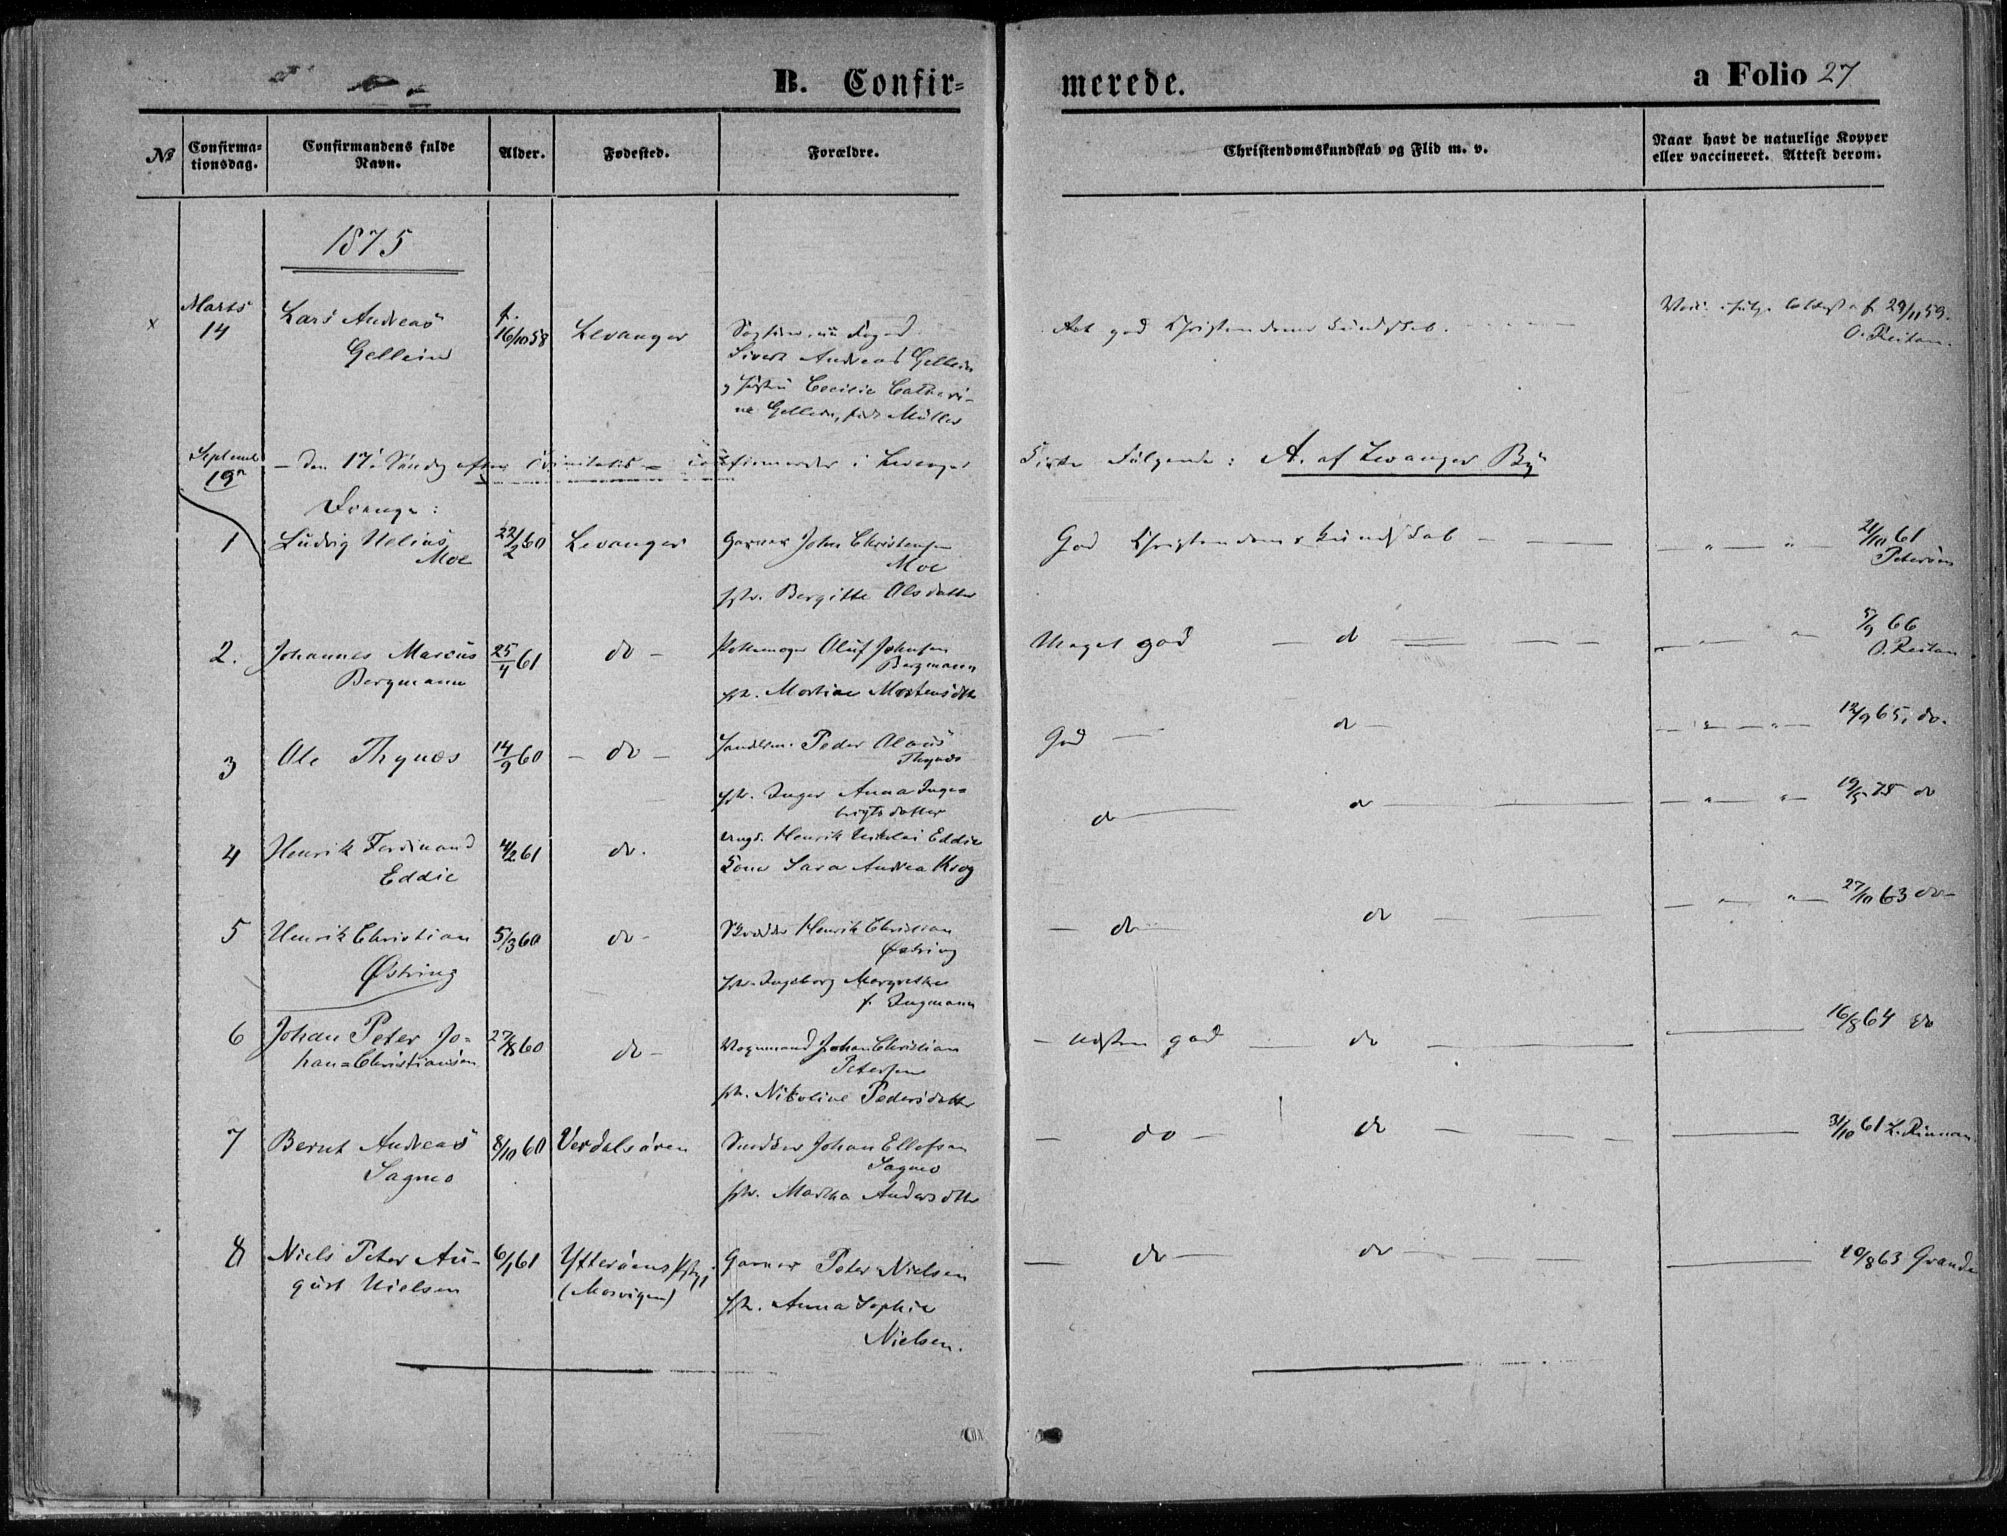 B. Confir=
merede.
a Folio 27
No
Confirma=
tionsdag.
Confirmandens fulde
Navn.
Alder.
Fødested.
Forældre.
Christendomskundskab og Flid m. v.
Naar havt de naturlige Kopper
eller vaccineret. Attest derom.
1875
x
Marts
14
Lars Andreas
Gellein
f.
16/10 58
Levanger
Sivert Andreas Gellein
Cecilie Cathari-
ne Gellein, født Müller
god Christendoms kundskab.
29/11 59.
O. Reitan.
Septemb
19n
- Den 17. Søndag efter Trinitatis - confirmerder i Levanger
Kirke Følgende: A. af Levanger By
Drenge:
1
Ludvig Nelius
Moe
22/2 60
Levanger
Garver John Christensen
Moe
Bergitte Olsdatter
God Christendoms kundskab
" "
21/10 61
Petersen
2.
Johannes Marcus
Bergmann
25/4 61
do
Oluf Johnsen
Bergmann
Martine Mortensdtr
Meget god
d
" "
5/9 66
O. Reitan
3
Ole Thynes
14/9 60
- do -
Peder Olaus
Thynes
Inger Anna Inge
brigtsdatter
God
d
" "
12/9 65, do.
4
Henrik Ferdinand
Eddie
4/2 61
do.
Henrik Nikolai Eddie
Kone Sara Andrea Krog
do
do
" "
19/5 75 do
5
Henrik Christian
Østring
5/3 60
do
Skrædder Henrik Christian
Østring
Ingeborg Margrethe
f. Ingmann
do
do
" "
27/10 63 do
6
Johan Peter Jo-
han=Christiansen
27/8 60
do
Vognmand Johan Christian
Petersen
Nikoline Pedersdatter
- næsten god
do
16/8 64 do
7
Bernt Andreas
Sagmo
8/10 60
Verdalsøren
Snedker Johan Ellefsen
Sagmo
Martha Andersdtr
do
do
3/10 61 L. Rinnan
8
Niels Peter Au-
gust Nielsen
6/1 61
Ytterøens
(Mosvigen)
Garver Peter Nielsen
Anna Sophie
Nielsen.
do
do
10/8 63 Grande